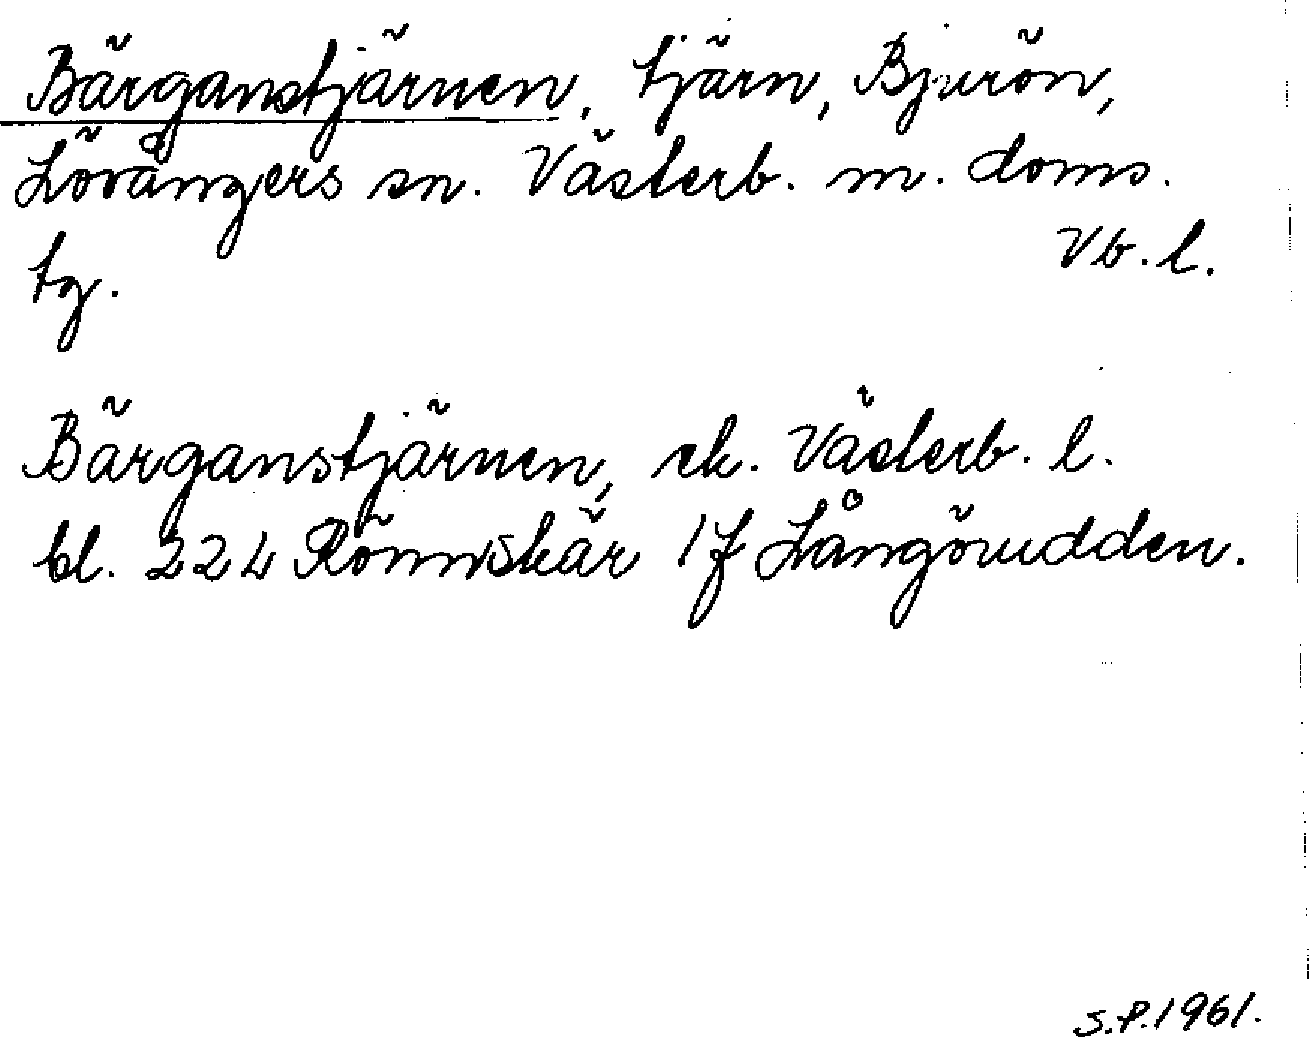 Bärganstjärnen, tjärn, Bjurön,
Lövångers sn. Västerb. m. doms.
tg. Vb. l.
Bärganstjärnen, ek. Västerb. l.
bl. 224 Rönnskär 1f Långörudden.
S.P.1961.